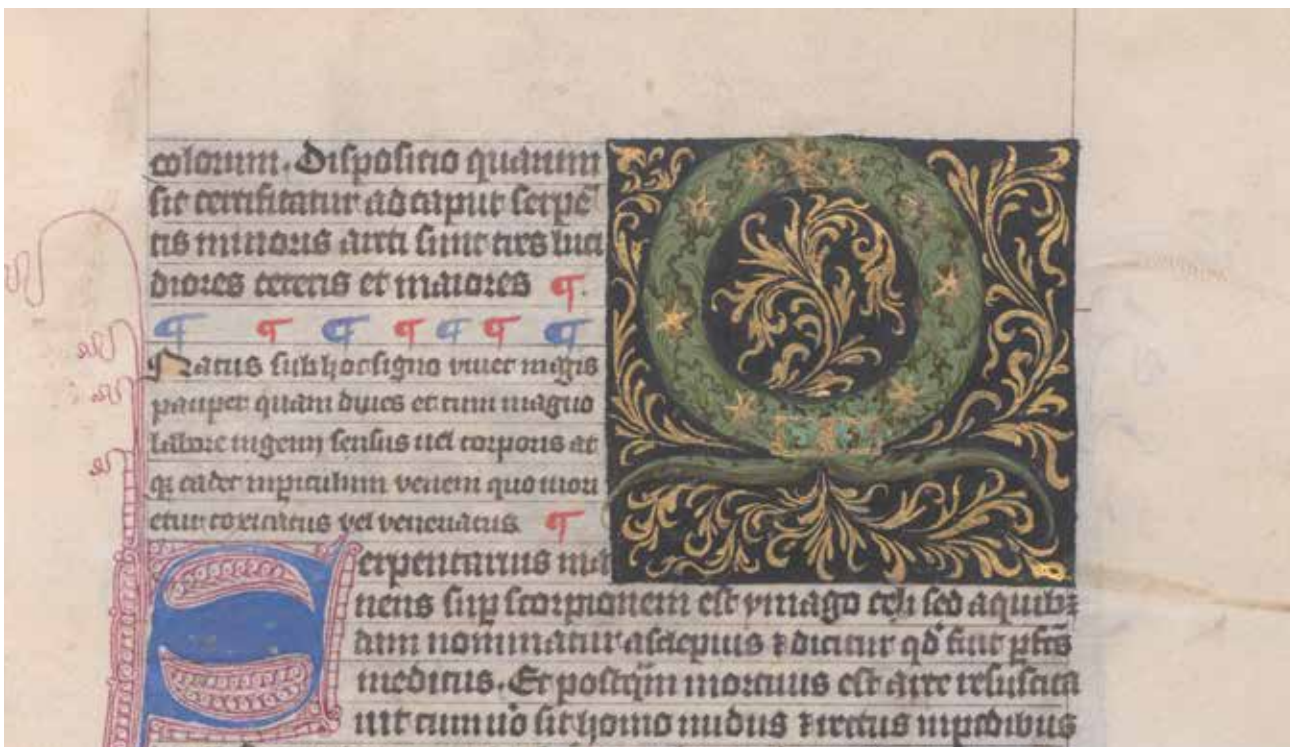 colorum. Dispositio quarum
sit certificatur ad caput serpē
tis minoris arcti sunt tres luci
diores ceteris et maiores ¶
¶ ¶ ¶ ¶ ¶ ¶ ¶
Natus sub hoc signo viuet magis
pauper quam diues et cum magno
labore ingenij sensus uel corporis at
qꝫ cadet in piculum venem quo mori
etur toxicatus vel venenatus ¶
Serpentarius ma
nens sup scorpionem est ymago celi sed a quibꝫ
dam nominatur asclepius ⁊ dicitur qd̄ fuit
medicus. Et postqm̄ mortuus est
uit cum sit homo nudus ⁊ in pedibus